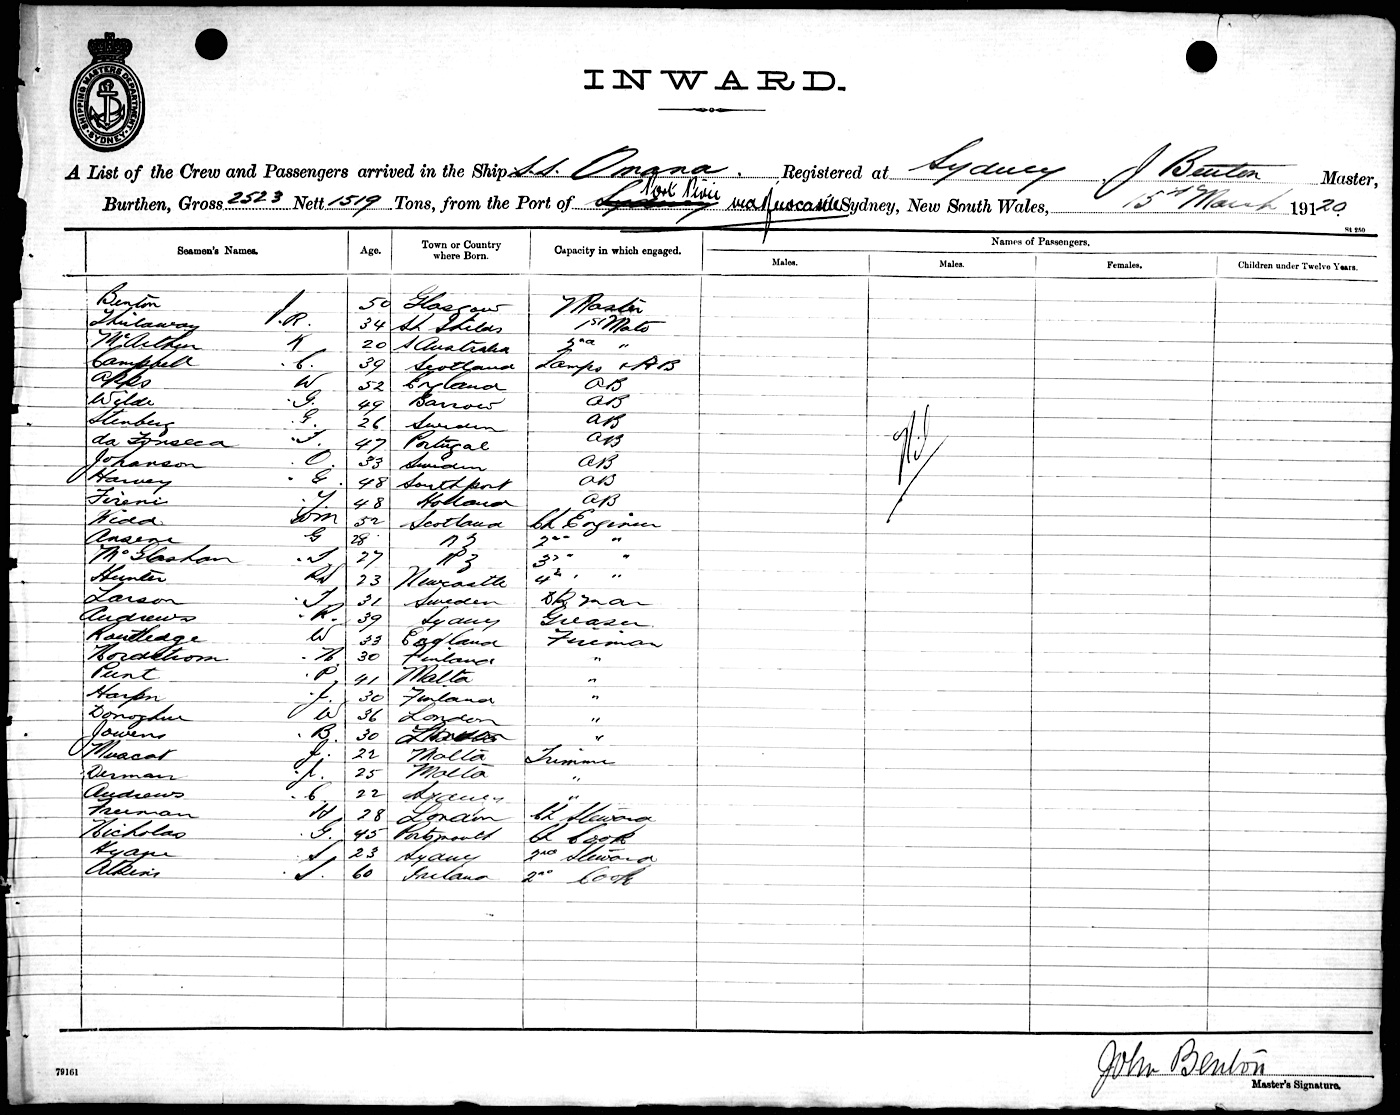 SHIPPING MASTERS DEPARTMENT · SYDNEY ·
INWARD.
A List of the Crew and Passengers arrived in the Ship S.S. Omana. Registered at Sydney, J Benton Master,
Burthen, Gross 2523 Nett 1519 Tons, from the Port of Sydney Port Pirie via Newcastle Sydney, New South Wales, 15th March 1920
St 250
Seamen's Names. Age. Town or Country where Born. Capacity in which engaged. Names of Passengers.
Males. Males. Females. Children under Twelve Years.
Benton J. 50 Glasgow Master
R. 34 Sh Shields 1st Mate
McArthur K 20 S Australia 2nd "
Campbell C. 39 Scotland Lamps & AB
Apps W 52 England AB
Wilde G. 49 Barrow AB
Stenberg G. 26 Sweden AB
da Fonseca J. 47 Portugal AB
Johanson O. 33 Sweden AB
Harvey G. 48 Southport AB
48 Holland AB
Wm 52 Scotland Ch Engineer
G 28 NZ 2nd "
McGlashan J 27 NZ 3rd "
Hunter 23 Newcastle 4th "
Larson J 31 Sweden
Andrews R. 39 Sydney Greaser
Routledge W 33 England Fireman
Nordstrom N. 30 Finland "
Punt P. 41 Malta "
J. 30 Finland "
Donoghue W 36 London "
Jowens B. 30 "
Muscat J. 22 Malta Trimmer
J. 25 Malta "
Andrews C. 22 Sydney "
Freeman W 28 London Ch Steward
Nicholas G. 45 Portsmouth Ch Cook
S. 23 Sydney 2nd Steward
Atkins J. 60 Ireland 2nd Cook
Nil
John Benton
Master's Signature.
79161